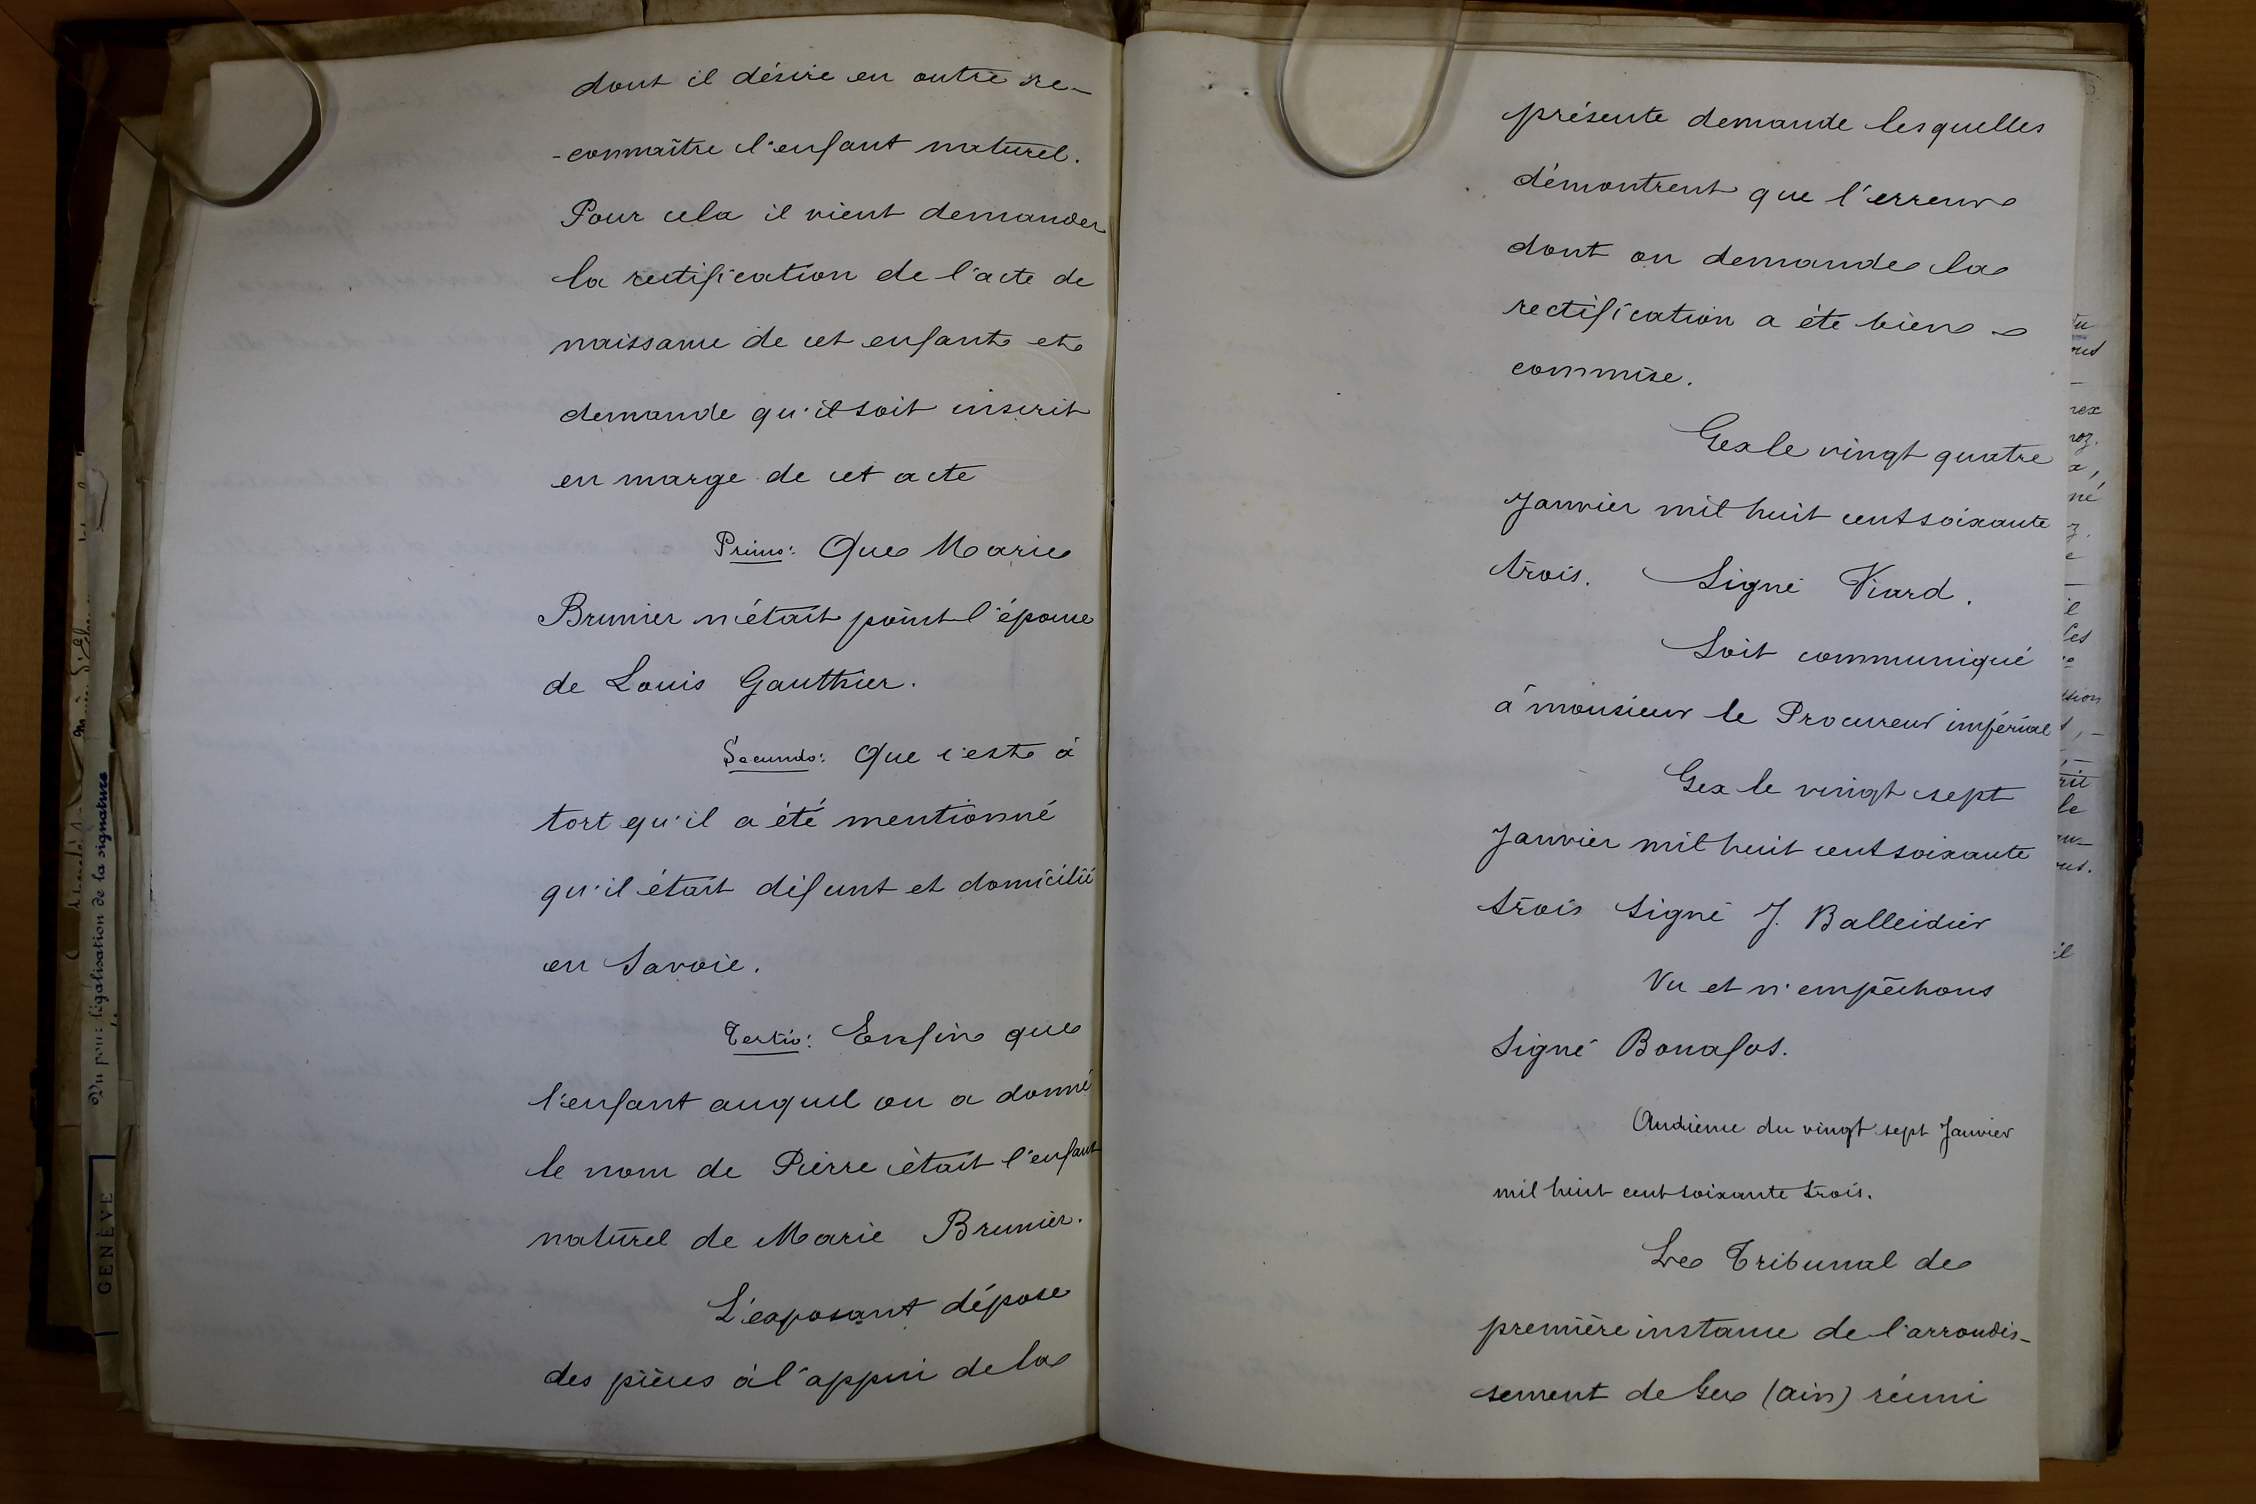 dont il désire en outre re-
-connaître l'enfant naturel.
Pour cela il vient demander
la rectification de l'acte de
naissance de cet enfant et
demande qu'il soit inscrit
en marge de cet acte
Primo: Que Marie
Brunier n'était point l'épouse
de Louis Gauthier.
Secundo: Que c'est à
tort qu'il a été mentionné
qu'il était défunt et domicilié
en Savoie.
Tertio: Enfin que
l'enfant auquel on a donné
le nom de Pierre était l'enfant
naturel de Marie Brunier.
L'exposant dépose
des pièces à l'appui de la
présente demande lesquelles
démontrent que l'erreur
dont on demande la
rectification a été bien
commise.
Gex le vingt quatre
Janvier mil huit cent soixante
trois. Signé Viard.
Soit communiqué
à monsieur le Procureur impérial
Gex le vingt sept
Janvier mil huit cent soixante
trois signé J. Balleidier
Vu et n'empêchons
Signé Bonafos.
Audience du vingt sept Janvier
mil huit cent soixante trois.
Le Tribunal de
première instance de l'arrondis-
sement de Gex (ain) réuni
Vu pour légalisation de la signature
GENÈVE